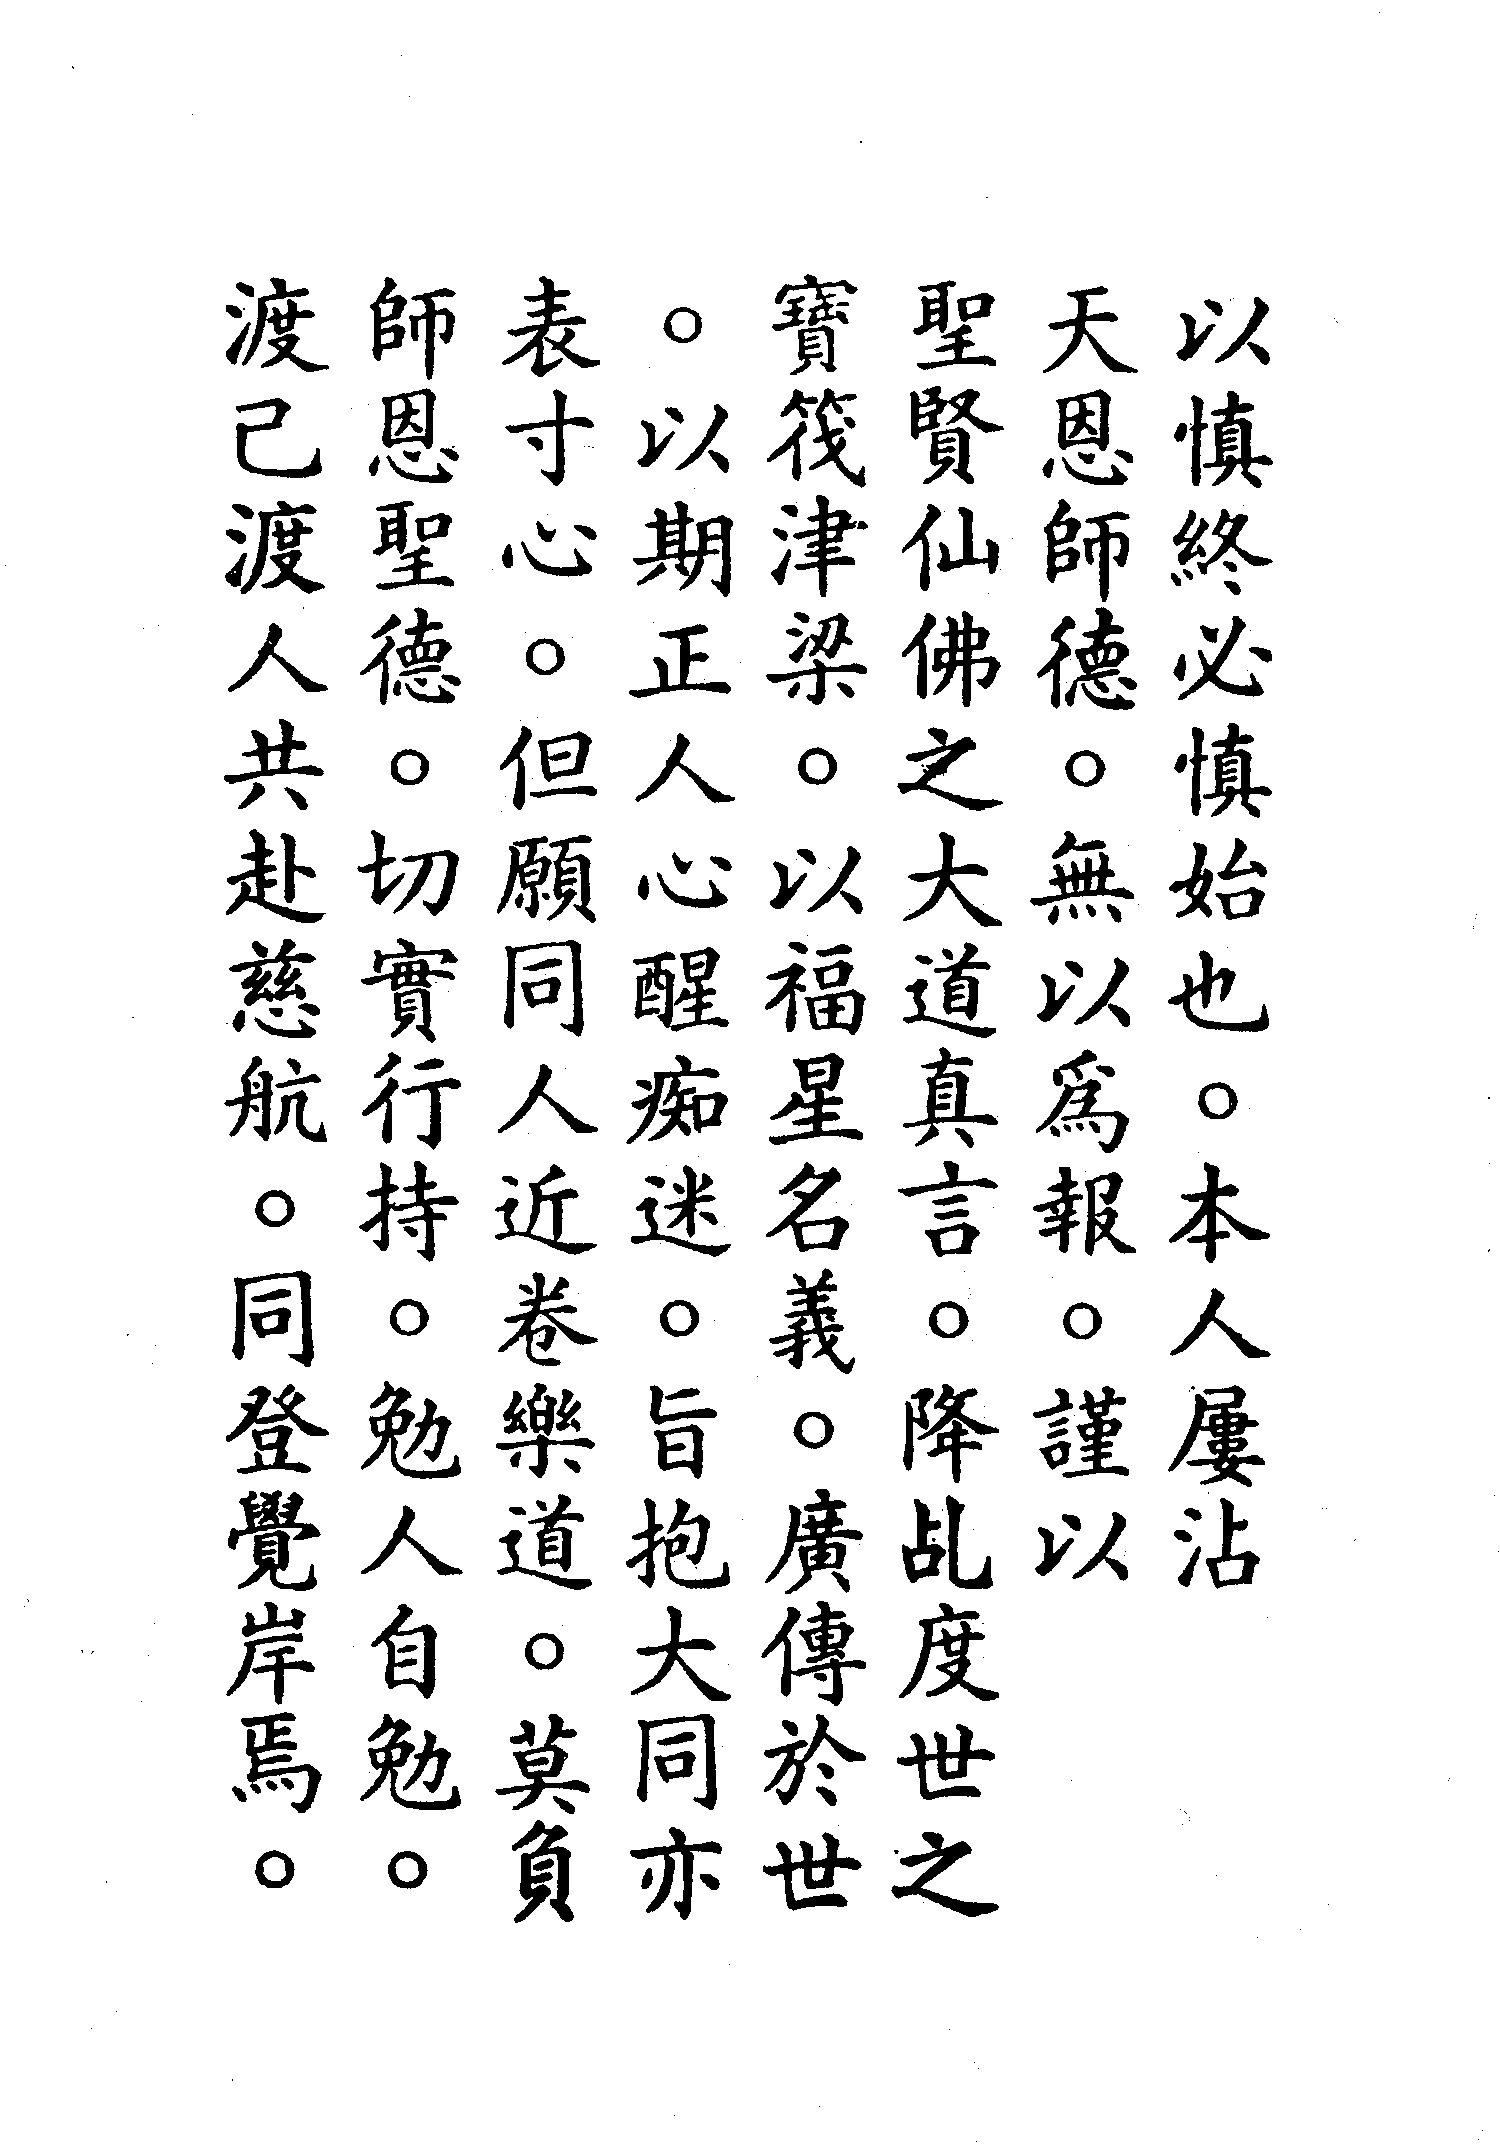 以慎終必慎始也。本人屢沾
天恩師德。無以爲報。謹以
聖賢仙佛之大道真言。降乩度世之
寶筏津梁。以福星名義。廣傳於世
。以期正人心醒痴迷。旨抱大同亦
表寸心。但願同人近卷樂道。莫負
師恩聖德。切實行持。勉人自勉。
渡己渡人共赴慈航。同登覺岸焉。